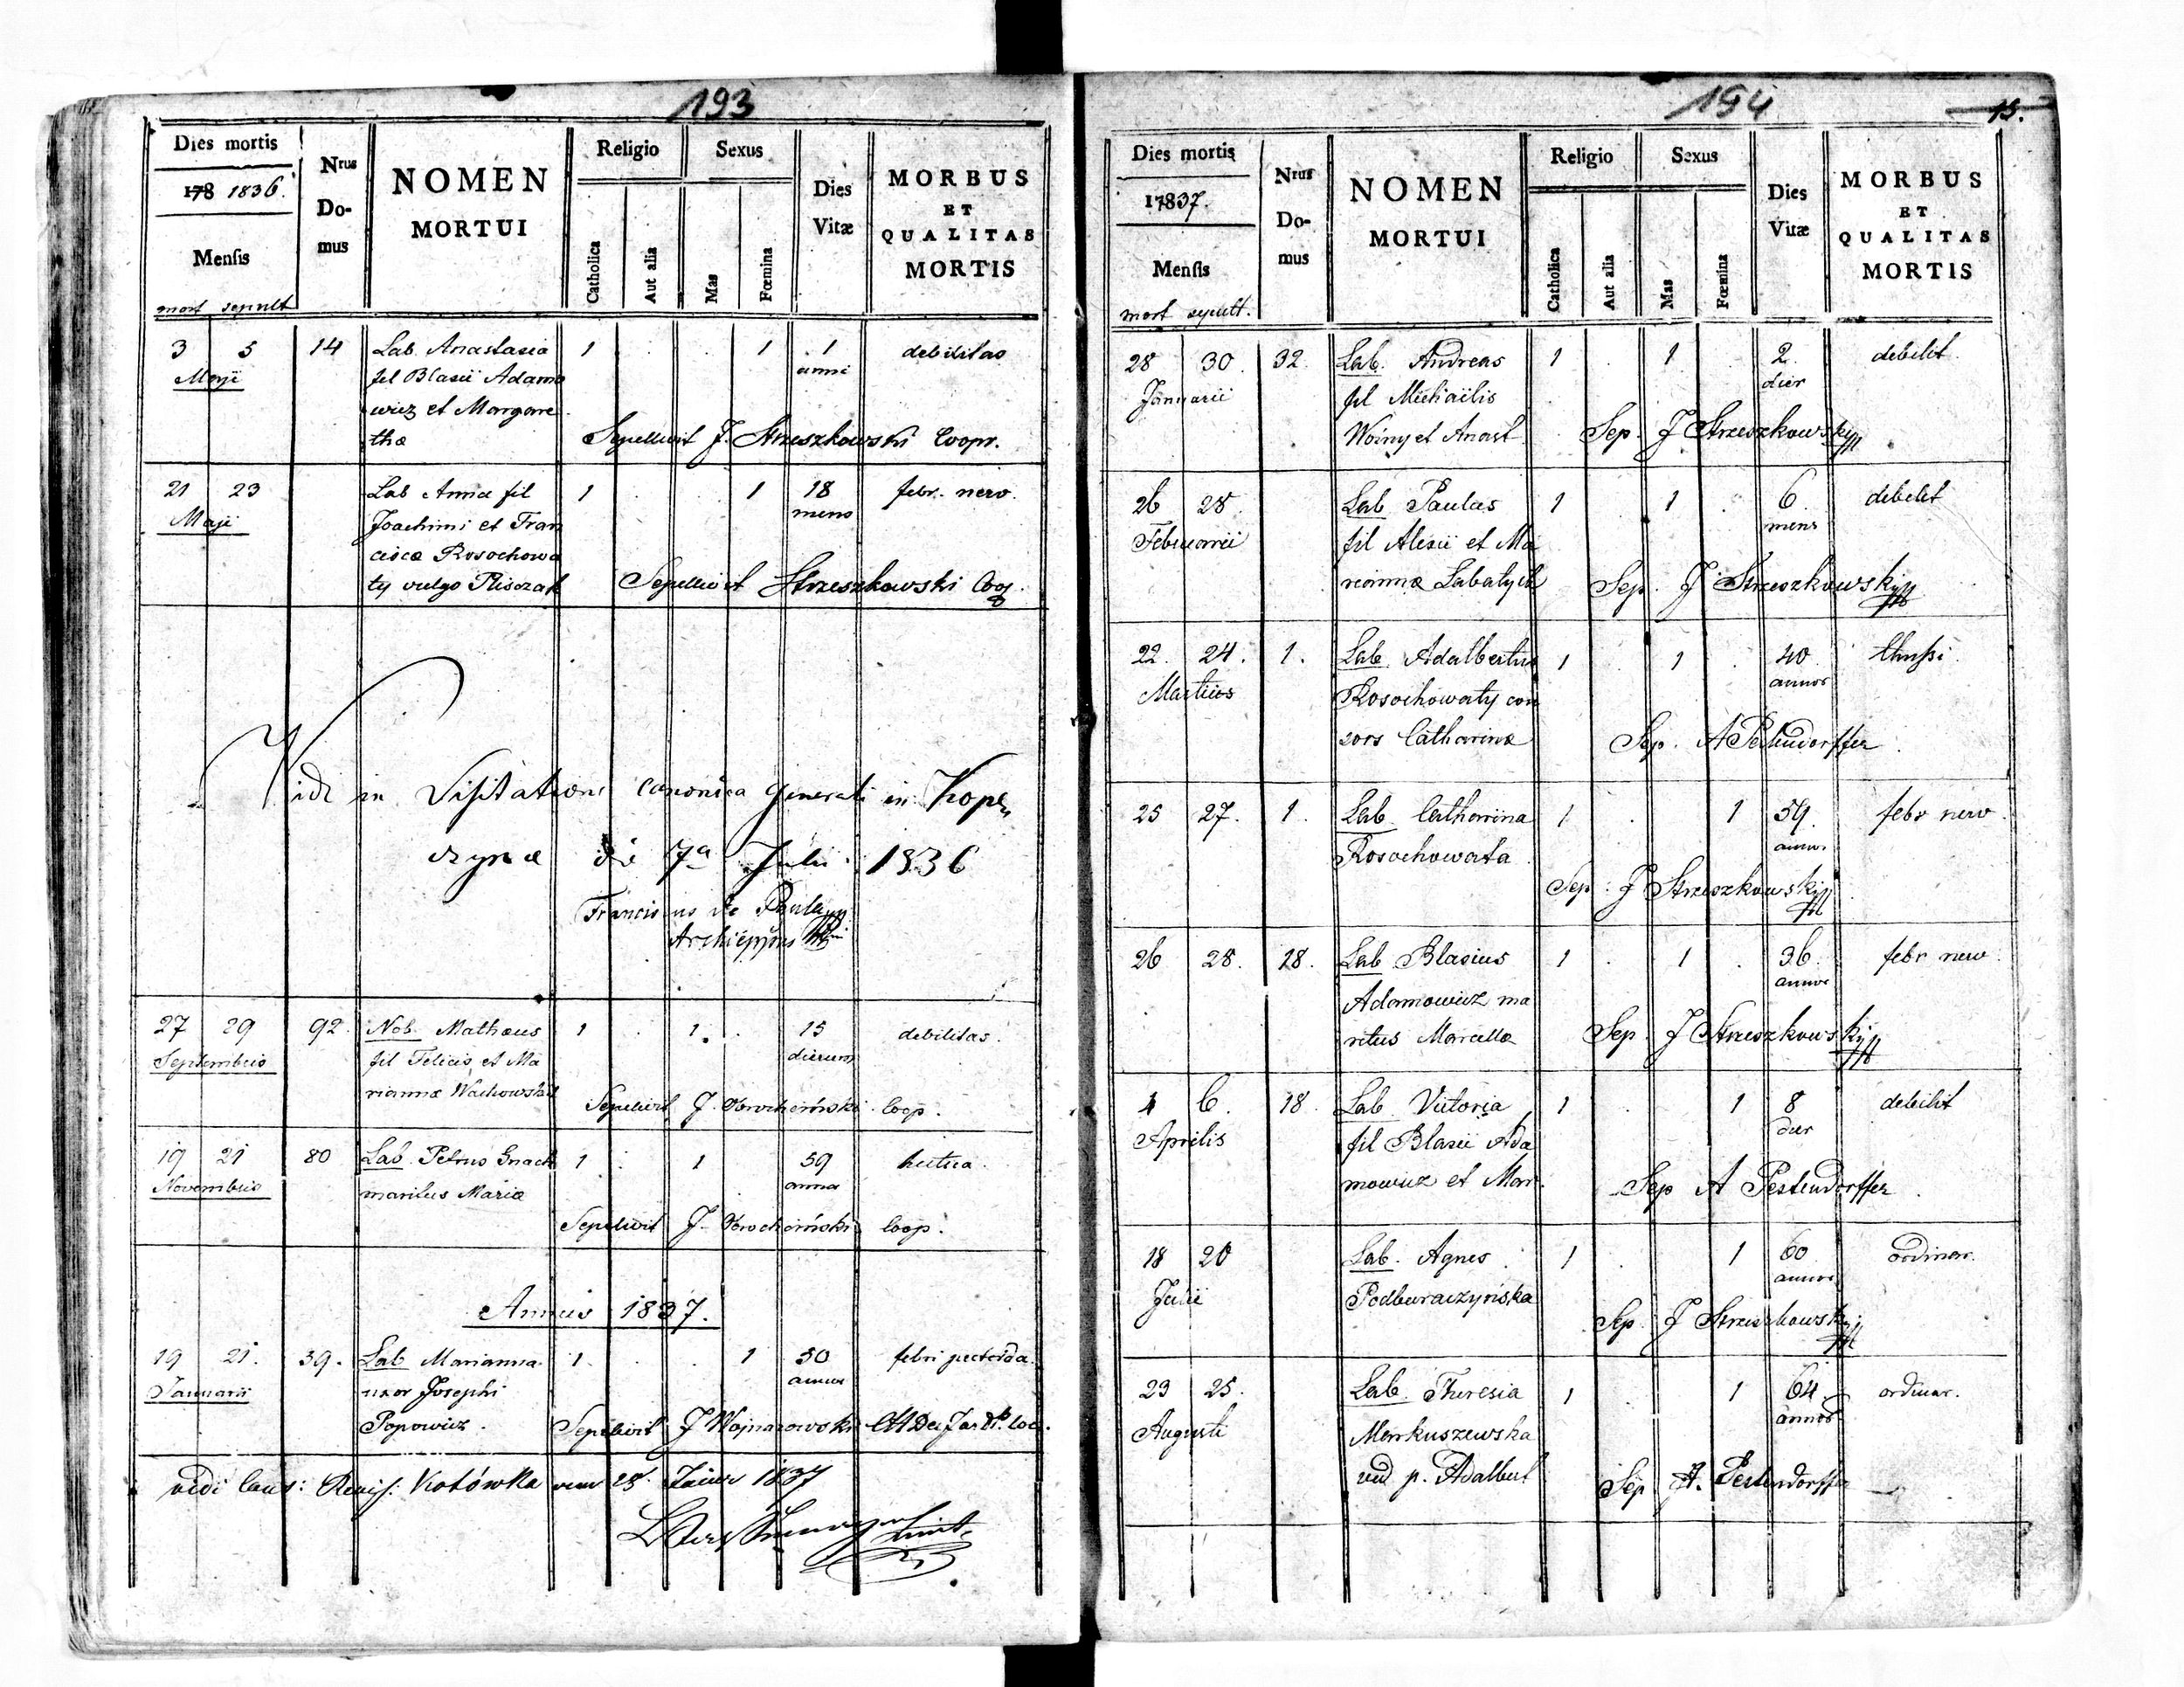 193
Dies mortis
178 1836.
Mensis
mort sepult
Nrus Do-mus
NOMEN
MORTUI
Religio
Catholica
Aut alia
Sexus
Mas
Fœmina
Dies
Vitæ
MORBUS
ET
QUALITAS
MORTIS
3 5 14 Lab. Anastasia 1 . . 1 1 debilitas
Maji fil Blasii Adamo anni
wicz et Margare
thæ Sepelivit J. Strzeszkowski Coopr.
21 23 Lab Anna fil 1 . . 1 18 febr. nerv.
Maji Joachimi et Fran mens
ciscæ Rosochowa
ty vulgo Pliszak Sepelivit Strzeszkowski Coop.
Vidi in Visitatione canonica generali in Kopy
czynce die 7a Julii 1836
Franciscus de Paula
Archieppus
27 29 92. Nob. Mathæus 1 . 1. . 15 debilitas.
Septembris fil Felicis et Ma dierum
riannæ Wachowski Sepelivit J. Coop.
19 21 80 Lab. Petrus Gnach 1 . 1 59 hectica.
Novembris maritus Mariæ anno
Sepelivit J. Coop.
Annus 1837.
19 21. 39. Lab Marianna 1. . . 1 50 febri
Januarii uxor Josephi annor
Popowicz. Sepelivit J Wojnarowski
vidi Revis: Kotówka 1837
194
15.
Dies mortis
17837.
Mensis
mort sepult.
Nrus Do-mus
NOMEN
MORTUI
Religio
Catholica
Aut alia
Sexus
Mas
Fœmina
Dies
Vitæ
MORBUS
ET
QUALITAS
MORTIS
28 30. 32. Lab. Andreas 1 . 1 . 2. debilit.
Januarii fil Michaëlis dier
Woiny et Anast. Sep. J Strzeszkowski
26 28. Lab Paulus 1 . 1 . 6 debilit
Februarii fil Alexii et Ma mens
riannæ Sabatych Sep. J Strzeszkowski
22. 24. 1. Lab. Adalbertus 1 . 1 . 40
Martius Rosochowaty con annor
sors Catharinæ Sep. A Pestendorffer
25 27. 1. Lab. Catharina 1 . . 1 59. febr nerv.
Rosochowata annor
Sep: J Strzeszkowski
26 28. 18. Lab Blasius 1 . 1 . 36. febr nerv.
Adamowicz ma annor
ritus Marcella Sep. J Strzeszkowski
4 6. 18. Lab. Victoria 1 . . 1 8 debilit
Aprilis fil Blasii Ada dier
mowicz et Mar. Sep A Pestendorffer
18 20 Lab. Agnes 1 . . 1 60 ordinar.
Julii Podburaczyńska annor
Sep. J Strzeszkowski
23 25. Lab. Theresia 1 . . 1 64 ordinar.
Augusti Markuszewska annor
vid p. Adalbert Sep. A. Pestendorffer